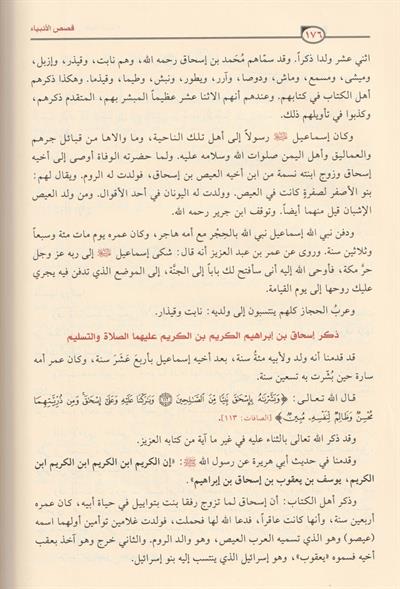 ١٧٦
قصص الأنبياء
اثني عشر ولدا ذكراً. وقد سمّاهم مُحَمد بن إسحاق رحمه الله، وهم نابت، وقيذر، وإزبل،
وميشى، ومسمع، وماش، ودوصا، وآرر، ويطور، ونبش، وطيما، وقيذما. وهكذا ذكرهم
أهل الكتاب في كتابهم. وعندهم أنهم الاثنا عشر عظيماً المبشر بهم، المتقدم ذكرهم،
وكذبوا في تأويلهم ذلك.
وكان إسماعيل ﷺ رسولاً إلى أهل تلك الناحية، وما والاها من قبائل جرهم
والعماليق وأهل اليمن صلوات الله وسلامه عليه. ولما حضرته الوفاة أوصى إلى أخيه
إسحاق وزوج ابنته نسمة من ابن أخيه العيص بن إسحاق، فولدت له الروم. ويقال لهم:
بنو الأصفر لصفرةٍ كانت في العيص. وولدت له اليونان في أحد الأقوال. ومن ولد العيص
الإشبان قيل منهما أيضاً. وتوقف ابن جرير رحمه الله.
ودفن نبي الله إسماعيل نبي الله بالحِجْر مع أمه هاجر، وكان عمره يوم مات مئة وسبعاً
وثلاثين سنة. وروي عن عمر بن عبد العزيز أنه قال: شكى إسماعيل ﷺ إلى ربه عز وجل
حرَّ مكة، فأوحى الله إليه أني سأفتح لك باباً إلى الجنَّة، إلى الموضع الذي تدفن فيه يجري
عليك روحها إلى يوم القيامة.
وعربُ الحجاز كلهم ينتسبون إلى ولديه: نابت وقيذار.
ذكر إسحاق بن إبراهيم الكريم بن الكريم عليهما الصلاة والتسليم
قد قدمنا أنه ولد ولأبيه مئةُ سنة، بعد أخيه إسماعيل بأربعَ عَشَرَ سنة، وكان عمر أمه
سارة حين بُشِّرت به تسعين سنة.
قال الله تعالى: ﴿وَبَشَّرْنَاهُ بِإِسْحَاقَ نَبِيًّا مِّنَ ٱلصَّالِحِينَ ۝١١٢ وَبَارَكْنَا عَلَيْهِ وَعَلَىٰ إِسْحَاقَ وَمِن ذُرِّيَّتِهِمَا
مُحْسِنٌ وَظَالِمٌ لِّنَفْسِهِۦ مُبِينٌ﴾ [الصافات: ١١٣].
وقد ذكر الله تعالى بالثناء عليه في غير ما آية من كتابه العزيز.
وقدمنا في حديث أبي هريرة عن رسول الله ﷺ: «إن الكريم ابن الكريم ابن الكريم ابن
الكريم، يوسف بن يعقوب بن إسحاق بن إبراهيم».
وذكر أهل الكتاب: أن إسحاق لما تزوج رفقا بنت بتواييل في حياة أبيه، كان عمره
أربعين سنة، وأنها كانت عاقراً، فدعا الله لها فحملت، فولدت غلامين توأمين أولهما اسمه
(عيصو) وهو الذي تسميه العرب العيص، وهو والد الروم. والثاني خرج وهو آخذ بعقب
أخيه فسموه «يعقوب»، وهو إسرائيل الذي ينتسب إليه بنو إسرائيل.